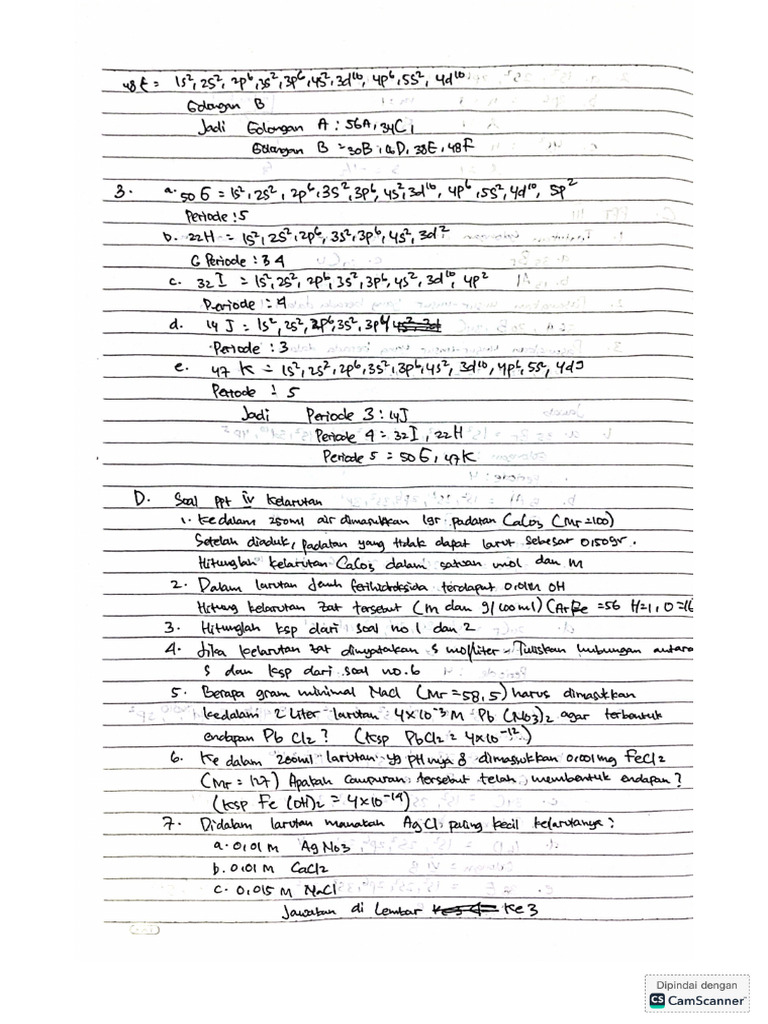 48E = 1s², 2s², 2p⁶, 3s², 3p⁶, 4s², 3d¹⁰, 4p⁶, 5s², 4d¹⁰
Golongan B
Jadi Golongan A : 56A, 34C,
Golongan B = 30B, D, 38E, 48F
3. a. 50 G = 1s², 2s², 2p⁶, 3s², 3p⁶, 4s², 3d¹⁰, 4p⁶, 5s², 4d¹⁰, 5p²
Periode : 5
b. 22H = 1s², 2s², 2p⁶, 3s², 3p⁶, 4s², 3d²
Periode : 4
c. 32 I = 1s², 2s², 2p⁶, 3s², 3p⁶, 4s², 3d¹⁰, 4p²
Periode : 4
d. 14 J = 1s², 2s², 2p⁶, 3s², 3p⁴
Periode : 3
e. 47 K = 1s², 2s², 2p⁶, 3s², 3p⁶, 4s², 3d¹⁰, 4p⁶, 5s², 4d⁹
Periode : 5
Jadi Periode 3 : 14J
Periode 4 = 32I, 22H
Periode 5 = 50G, 47K
D. Soal PPT IV Kelarutan
1. Kedalam 250ml air dimasukkan 1gr padatan CaCO₃ (Mr=100)
Setelah diaduk, padatan yang tidak dapat larut sebesar 0,50gr.
Hitunglah kelarutan CaCO₃ dalam satuan mol dan M
2. Dalam larutan jenuh ferihidroksida terdapat 0,01M OH
Hitung kelarutan zat tersebut (M dan g/100ml) (Ar Fe = 56 H=1, O=16
3. Hitunglah ksp dari soal no 1 dan 2
4. Jika kelarutan zat dinyatakan s mol/liter. Tuliskan hubungan antara
s dan ksp dari soal no. 6
5. Berapa gram minimal NaCl (Mr = 58,5) harus dimasukkan
kedalam 2 Liter larutan 4x10⁻³ M Pb (NO₃)₂ agar terbentuk
endapan Pb Cl₂ ? (Ksp PbCl₂ = 4x10⁻¹²)
6. Ke dalam 200ml larutan yg pHnya 8 dimasukkan 0,001mg FeCl₂
(Mr = 127) Apakah campuran tersebut telah membentuk endapan ?
(Ksp Fe (OH)₂ = 4x10⁻¹⁴)
7. Didalam larutan manakah AgCl paling kecil kelarutanya :
a. 0,01 M AgNO₃
b. 0,01 M CaCl₂
c. 0,015 M NaCl
Jawaban di Lembar Ke 3
Dipindai dengan
CS CamScanner